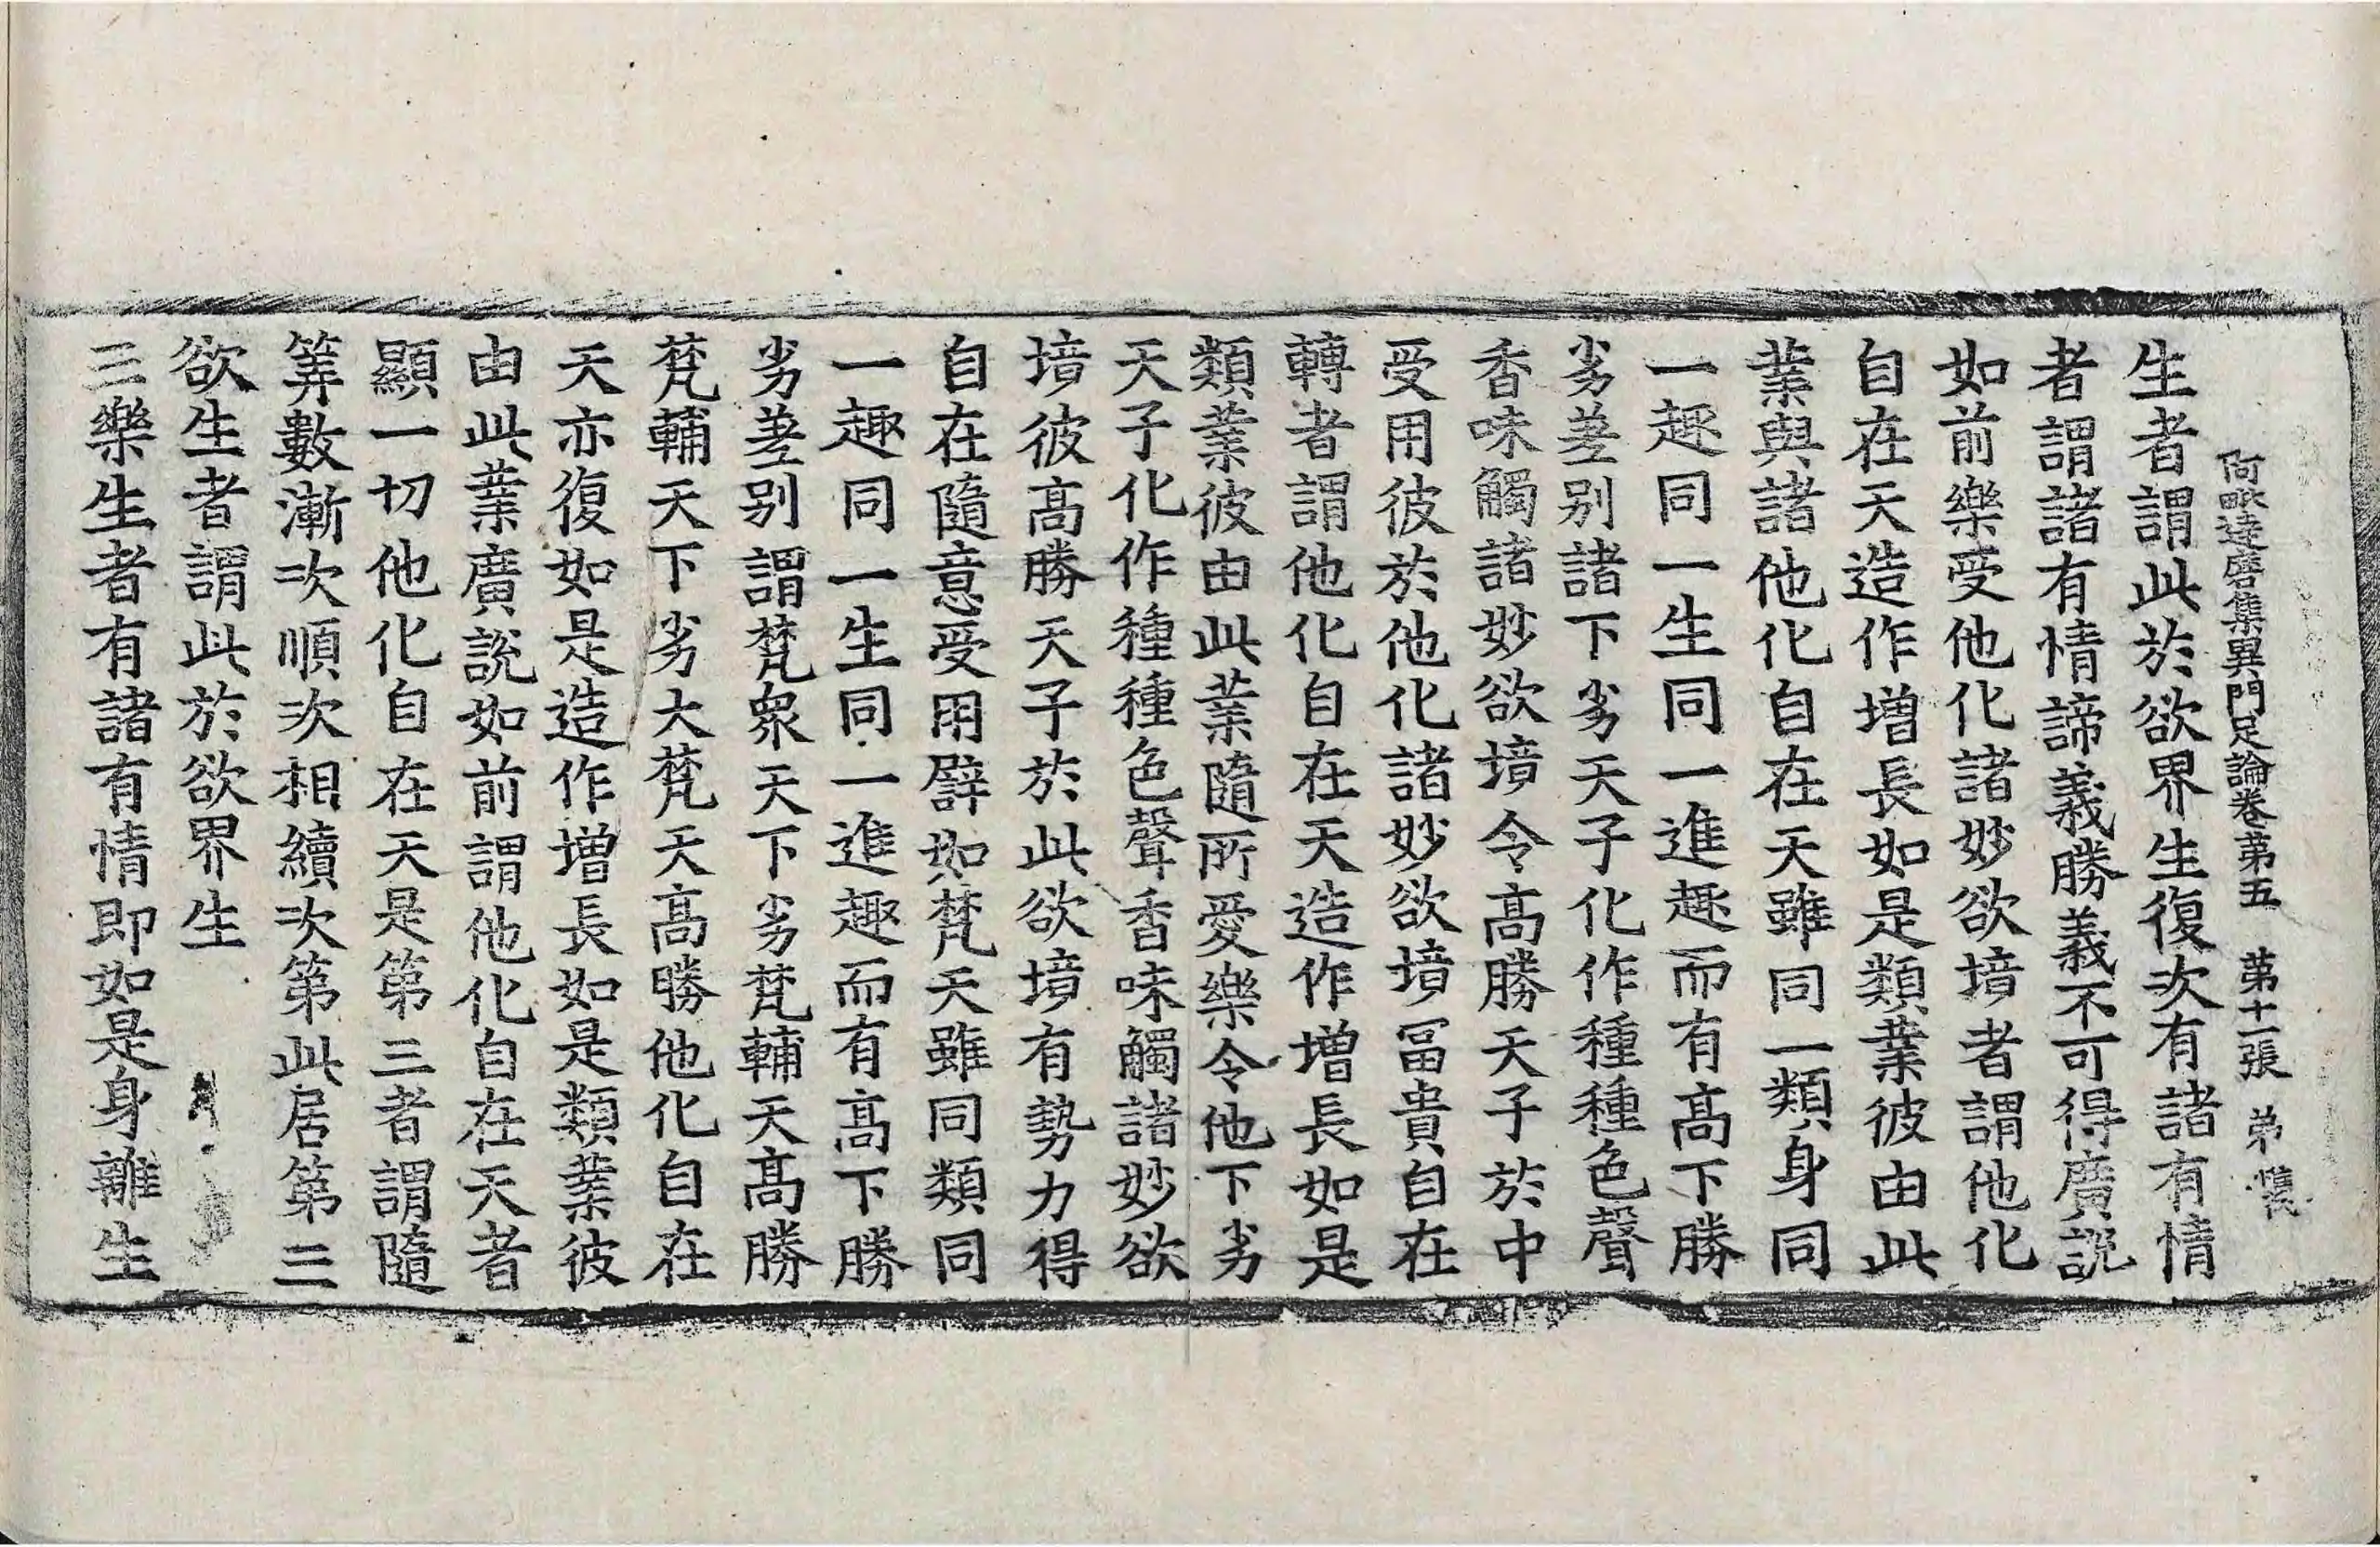 阿毗達磨集異門足論卷第五 第十一張 弟
生者謂此於欲界生復次有諸有情
者謂諸有情諦義勝義不可得廣說
如前樂受他化諸妙欲境者謂他化
自在天造作增長如是類業彼由此
業與諸他化自在天雖同一類身同
一趣同一生同一進趣而有高下勝
劣差别諸下劣天子化作種種色聲
香味觸諸妙欲境令高勝天子於中
受用彼於他化諸妙欲境冨貴自在
轉者謂他化自在天造作增長如是
類業彼由此業隨所愛樂令他下劣
天子化作種種色聲香味觸諸妙欲
境彼高勝天子於此欲境有勢力得
自在隨意受用譬如梵天雖同類同
一趣同一生同一進趣而有高下勝
劣差别謂梵衆天下劣梵輔天高勝
梵輔天下劣大梵天高勝他化自在
天亦復如是造作增長如是類業彼
由此業廣說如前謂他化自在天者
顯一切他化自在天是第三者謂隨
筭數漸次順次相續次第此居第三
欲生者謂此於欲界生
三樂生者有諸有情即如是身離生